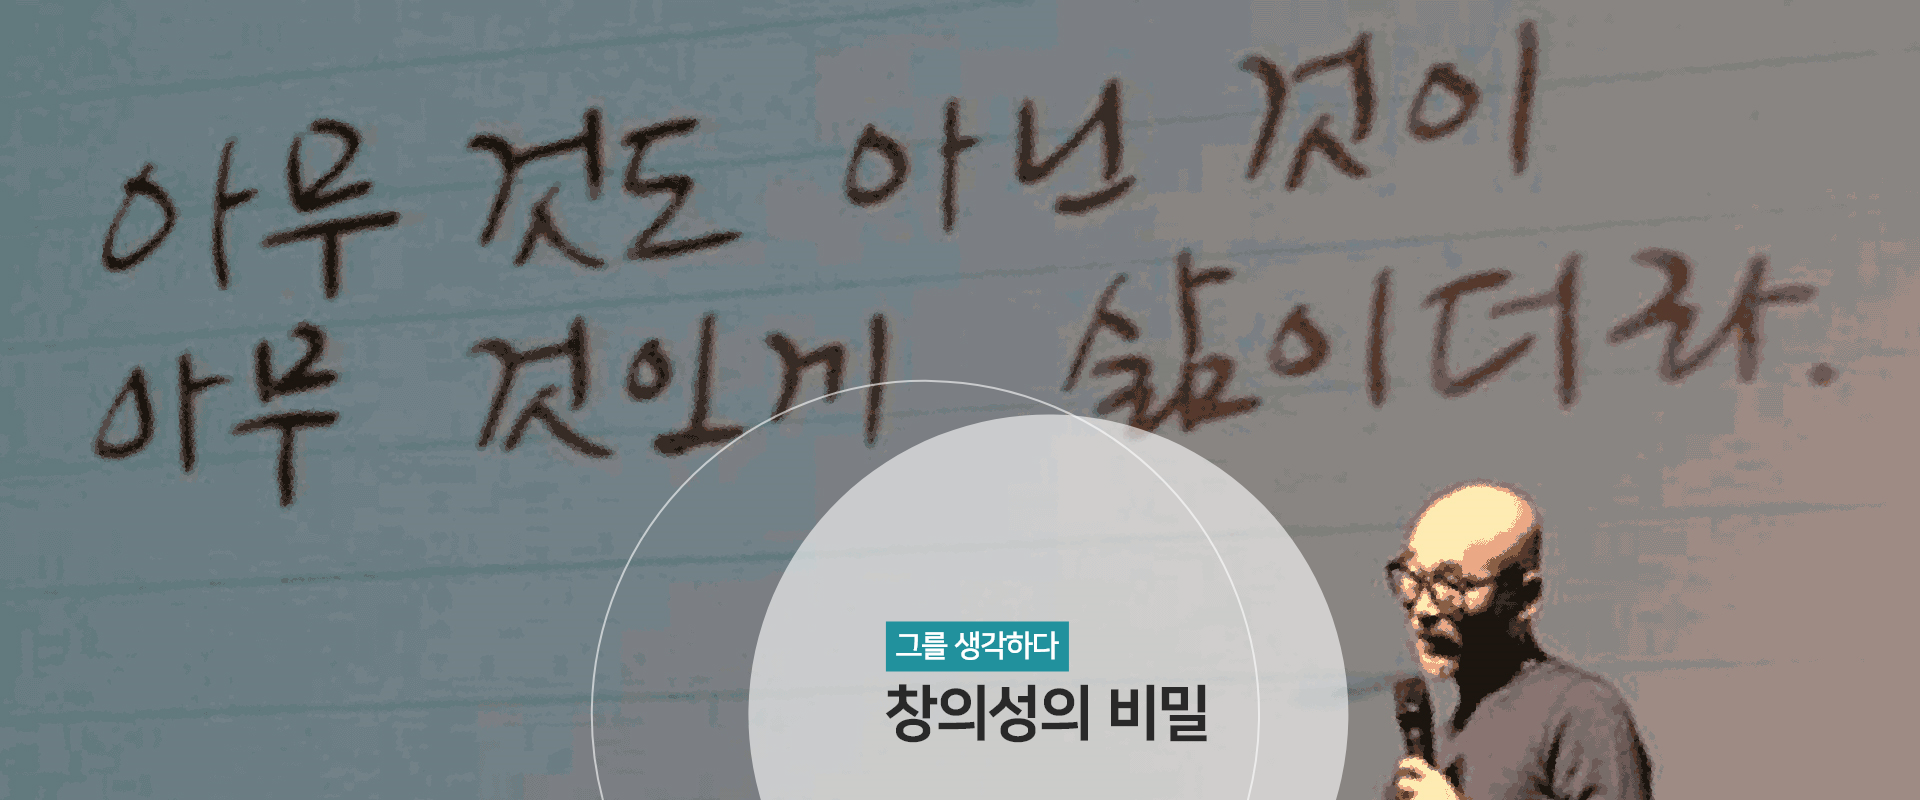 아무 것도 아닌 것이
아무 것인게 삶이더라.
그를 생각하다
창의성의 비밀